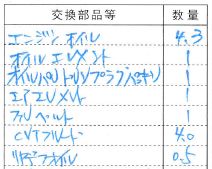 交換部品等 数量
エンジンオイル 4.3
オイルエレメント 1
オイルパンドレンプラグパッキン 1
エアエレメント 1
ファンベルト 1
CVTフルード 4.0
リヤデフオイル 0.5